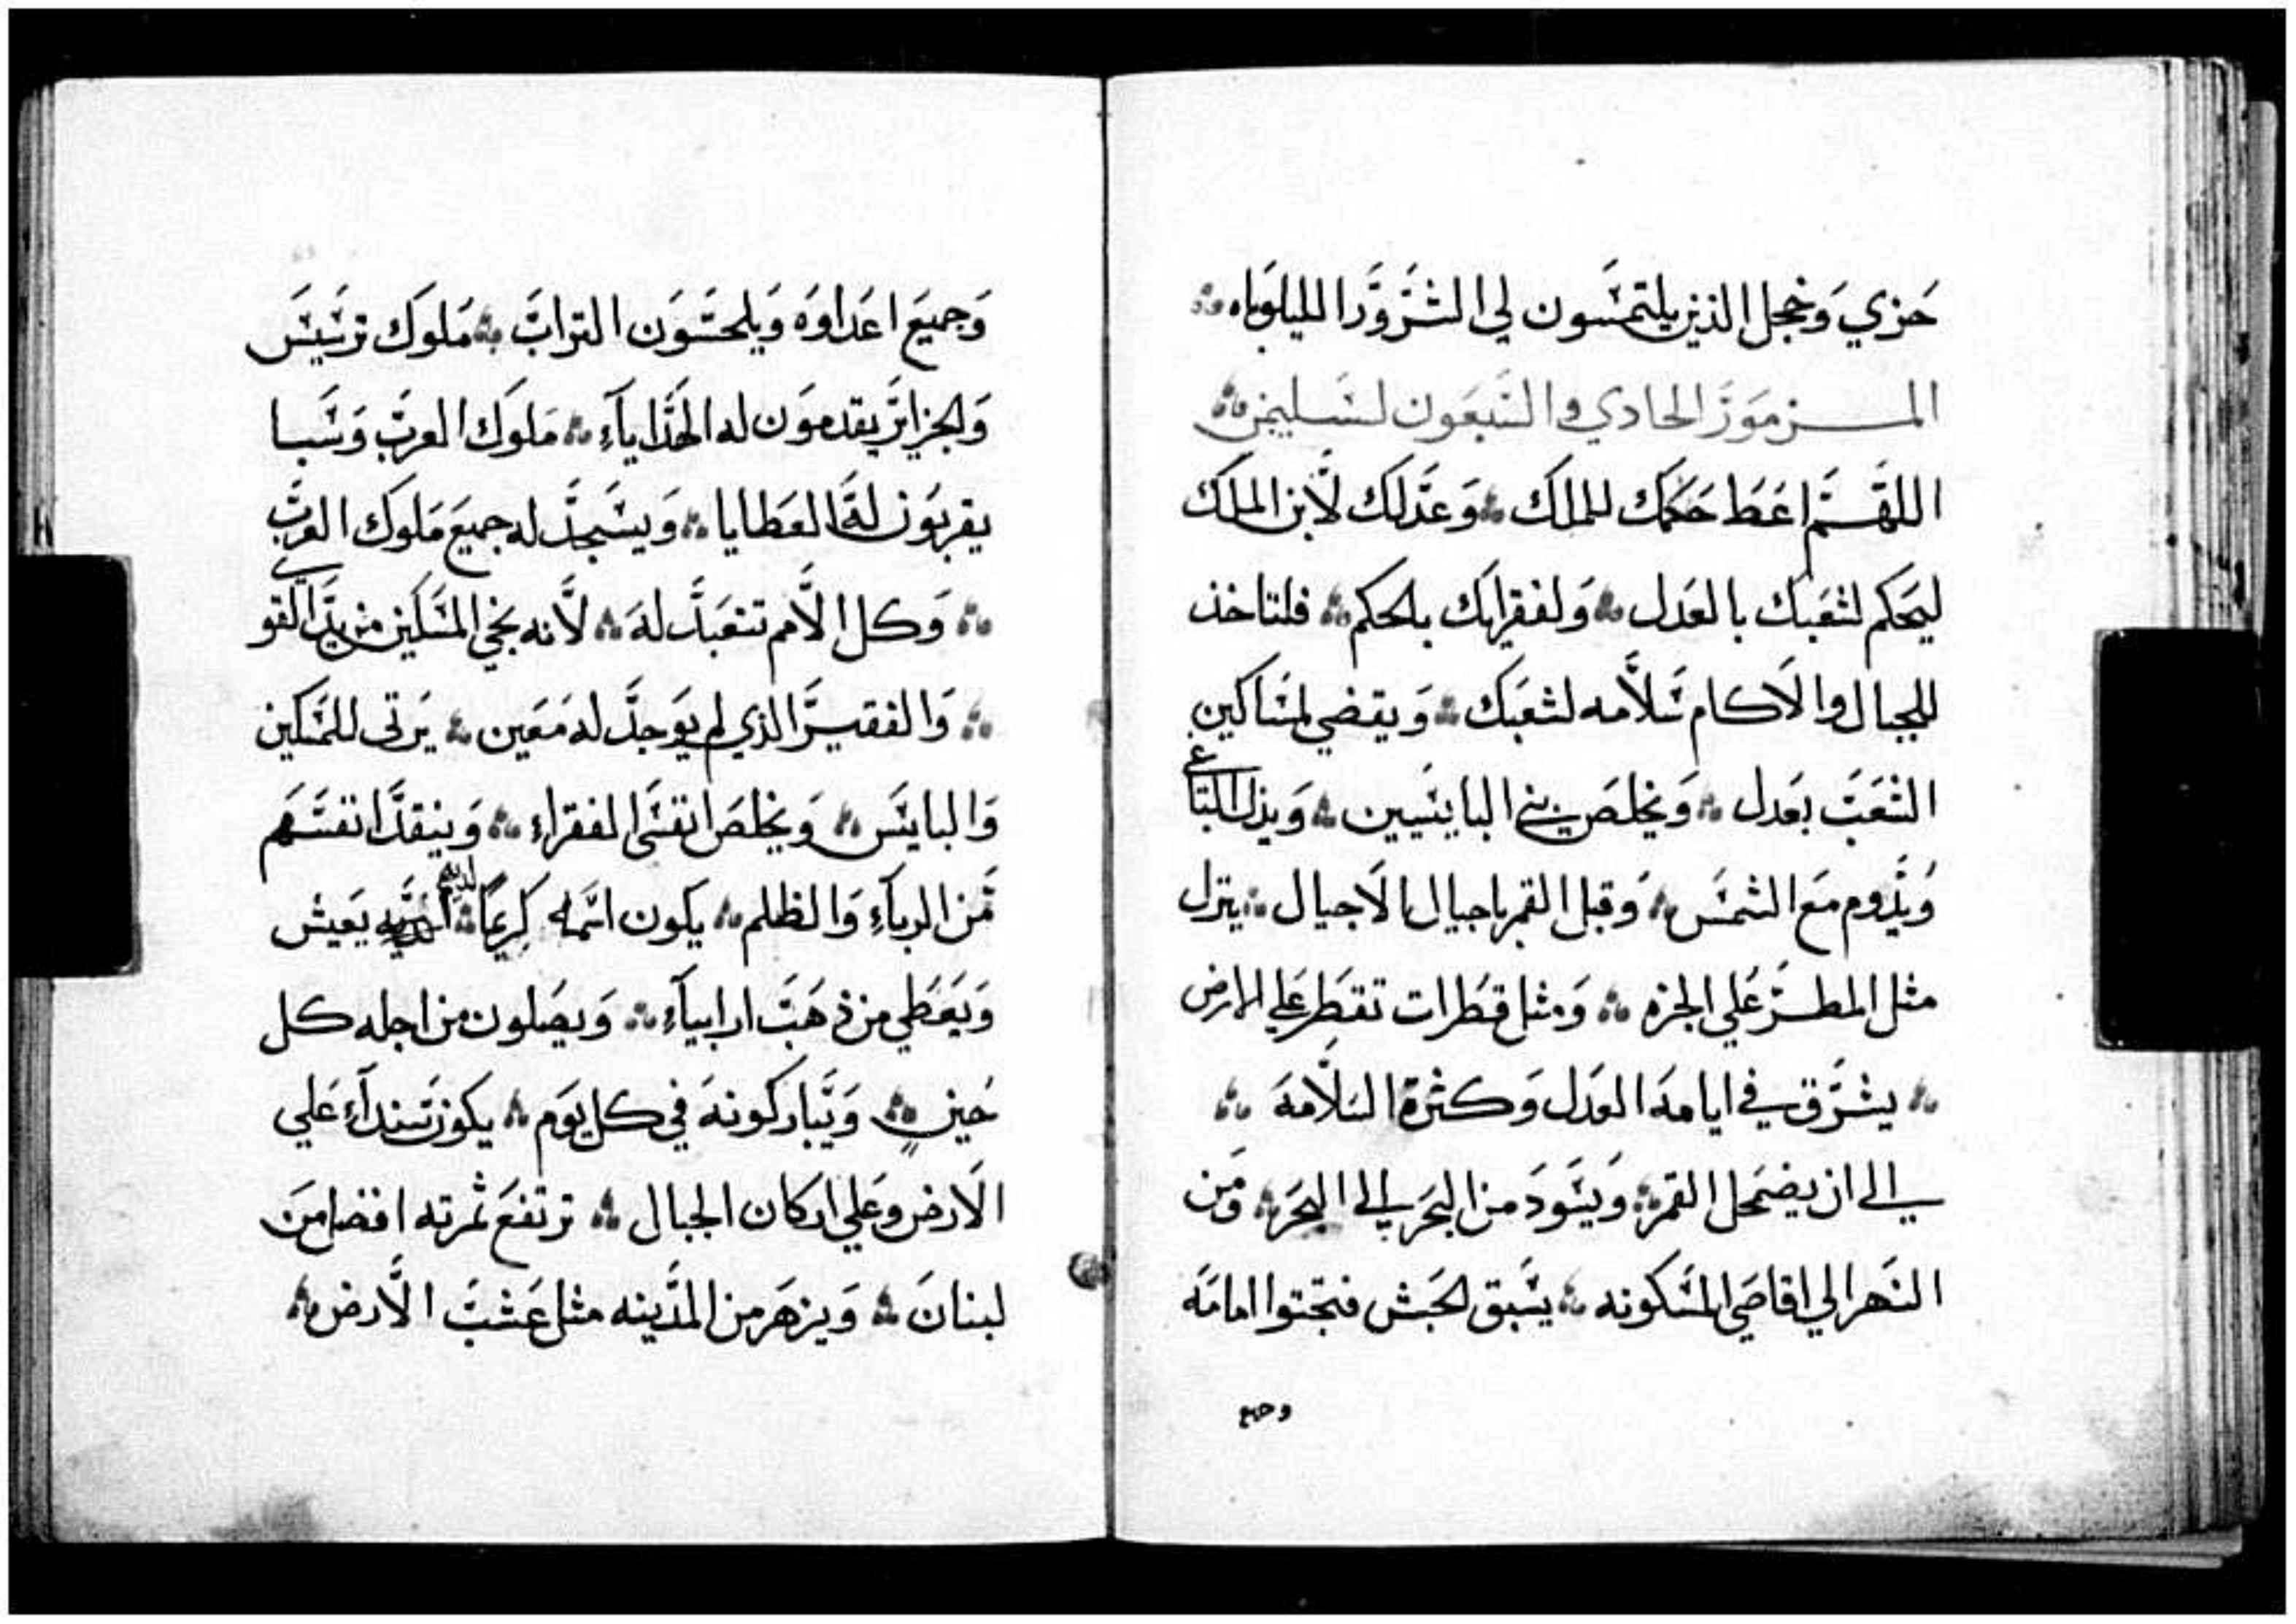 خزي وخجل الذين يلتمسون لي الشرور الليلوياه
المزمور الحادي والسبعون لسليمن
اللهم اعط حكمك للملك وعدلك لابن الملك
ليحكم لشعبك بالعدل ولفقرايك بالحكم فلتاخذ
الجبال والاكام سلامه لشعبك ويقضي لمساكين
الشعب بعدل ويخلص بني البايسين ويذل الباغي
ويدوم مع الشمس وقبل القمر باجيال الاجيال ينزل
مثل المطر علي الجزه ومثل قطرات تقطر علي الارض
يشرق في ايامه العدل وكثرة السلامه
الي ان يضمحل القمر ويسود من البحر الي البحر ومن
النهر الي اقاصي المسكونه يسبق الحبش فيجتوا امامه
وجميع
وجميع اعداوه ويلحسون التراب ملوك ترسيس
والجزاير يقدمون له الهدايآء ملوك العرب وسبا
يقربون له العطايا ويسجد له جميع ملوك العرب
وكل الامم تتعبد له لانه ينجي المسكين من يد القوي
والفقير الذي لم يوجد له معين يرتي للمسكين
والبايس ويخلص انفس الفقراء وينقد انفسهم
من الربآء والظلم يكون اسمه كريما لديهم يعيش
ويعطي من ذهب ارابيآء ويصلون من اجله كل
حين ويباركونه في كل يوم يكون سندآء علي
الارض وعلي اركان الجبال ترتفع ثمرته افضل من
لبنان ويزهر من المدينه مثل عشب الارض